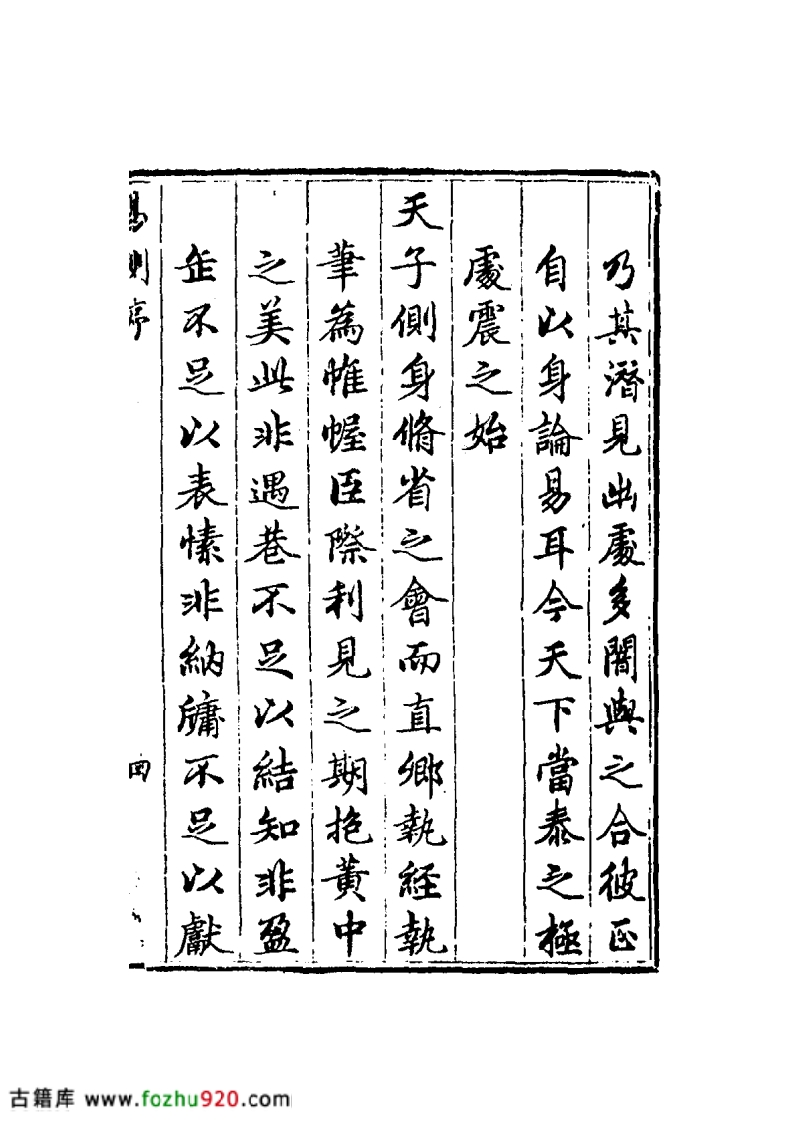 乃其潛見出處多闇與之合彼正
自以身論易耳今天下當泰之極
處震之始
天子側身脩省之會而直卿執經執
筆為帷幄臣際利見之期抱黃中
之美此非遇巷不足以結知非盈
缶不足以表愫非納牖不足以獻
易測序
四
古籍库 www.fozhu920.com